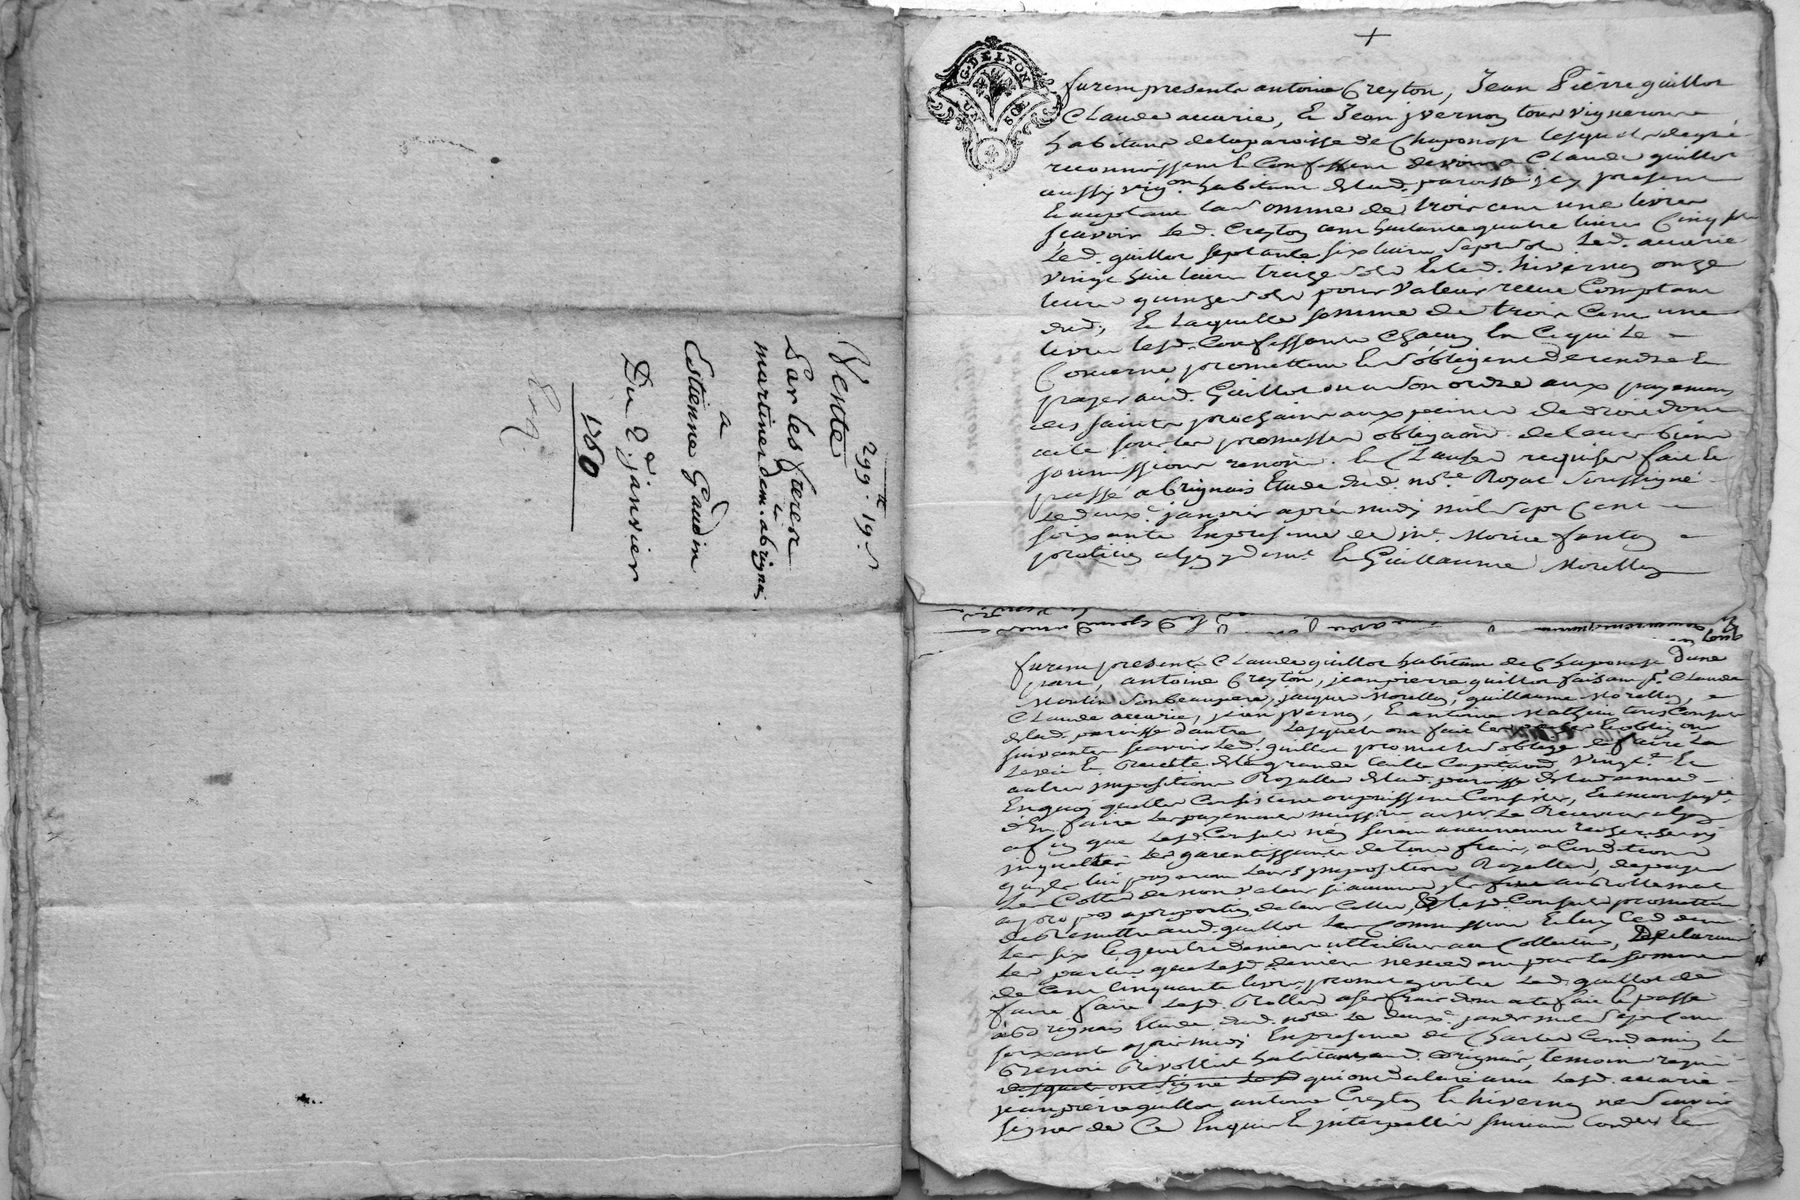 Vente
299 te 19 s
Par les freres
martinere dem. a brignais
a
Estienne Gaudin
Du 2 d janvier
1760
G. DE LYON
UN SOL
furem presents antoine Creyton, Jean Pierre guillot
Claude accarie, & Jean yvernoy tous vignerons
habitans de la paroisse de Chaponost lesquels de gré
reconnoissent & Confessent devoir a Claude guillot
aussy vig.on habitant de lad. paroisse icy present
& aceptant la somme de trois cent une livres
scavoir led. Creyton cent huitante quatre livres Cinq sols
Led. guillot septante six livres sept sols Led. accarie
vingt huit livres treize sols & led. hivernoy onze
livres quinze sols pour valeur receue Comptant
dud., & Laquelle somme de trois Cent une
livres lesd. Confessants chacun En Ce qui le
Concerne promettent & s'obligent de rendre &
payer aud. Guillot ou a son ordre aux payements
des saints prochains aux peines de droit dont
acte sous les promesses obligaon. de leurs biens
soumissions renon. & Clauses requises fait &
passé a Brignais Etude dud. no.re Royal soussigné
Le deux.e janvier après midy mil sept Cent
soixante En presence de m.e
praticien & Guillaume Morellon
furem presents Claude guillot habitant de Chaponost d'une
part, antoine Creyton, jean pierre guillot faisant p.r Claude
son beaupere, jacques Morellon, guillaume Morellon,
Claude accarie, jean yvernoy, & antoine Mathieu tous Consuls
de lad. paroisse d'autre, Lesquels ont fait les
suivantes scavoir Led. guillot promet & s'oblige de faire La
Levée & Recette de la grande taille Capitaon. Vingt.e &
autres impositions Royalles de lad. paroisse de lad. année
En quoy qu'elles Consistent ou puissent Consister,
d'En faire les payements
afin que Lesd. Consuls n'en soient aucunement
inquiettés les garentissant de tous frais, a Condition
qu'ils lui payeront leurs impositions Royalles,
Les Cottes de non valeur
a proportion de leur Cottes, & Lesd. Consuls promettent
de Remettre aud. guillot Les Commissions
Les six & quatre deniers attribués aux Collecteurs, Declarant
Les parties que Lesd. deniers n'excedent pas La somme
de Cent Cinquante livres, promet & outre Led. guillot de
faire faire Lesd. Rolles a ses frais dont acte fait & passé
a Brignais Etude dud. no.re Le deux.e janvier mil sept Cent
soixante après midy En presence de Charles Condamin &
Benoit Rivollier habitants aud. Brignais, temoins requis
qui ont declaré avec Lesd. accarie
jean pierre guillot antoine Creyton & hivernoy ne scavoir
signer de Ce Enquis & interpellés suivant Lordce &